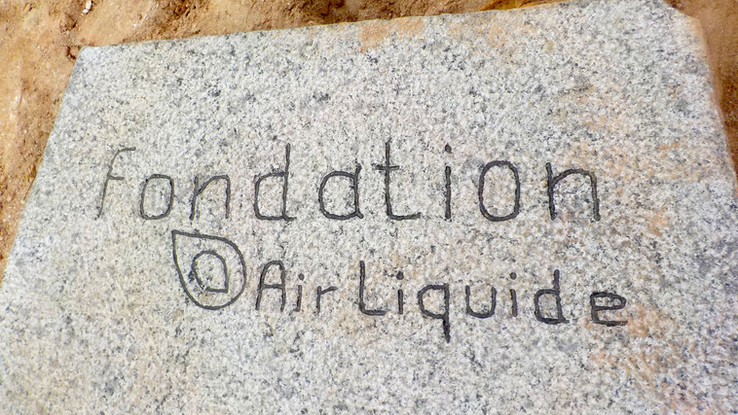 fondation
Air Liquide